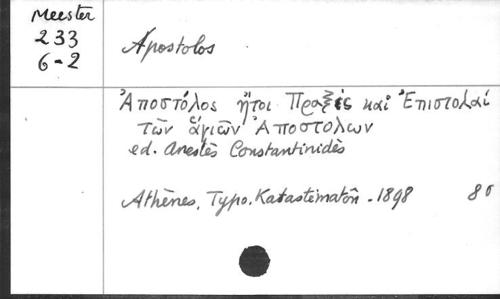 Meester
233
6-2
Apostolos
Ἀποστόλος ἤτοι Πραξεις καὶ Ἐπιστολαί
τῶν ἁγιῶν Ἀποστολων
ed. Anestès Constantinidès
Athènes, Typo. Katastèmatôn - 1898 8°